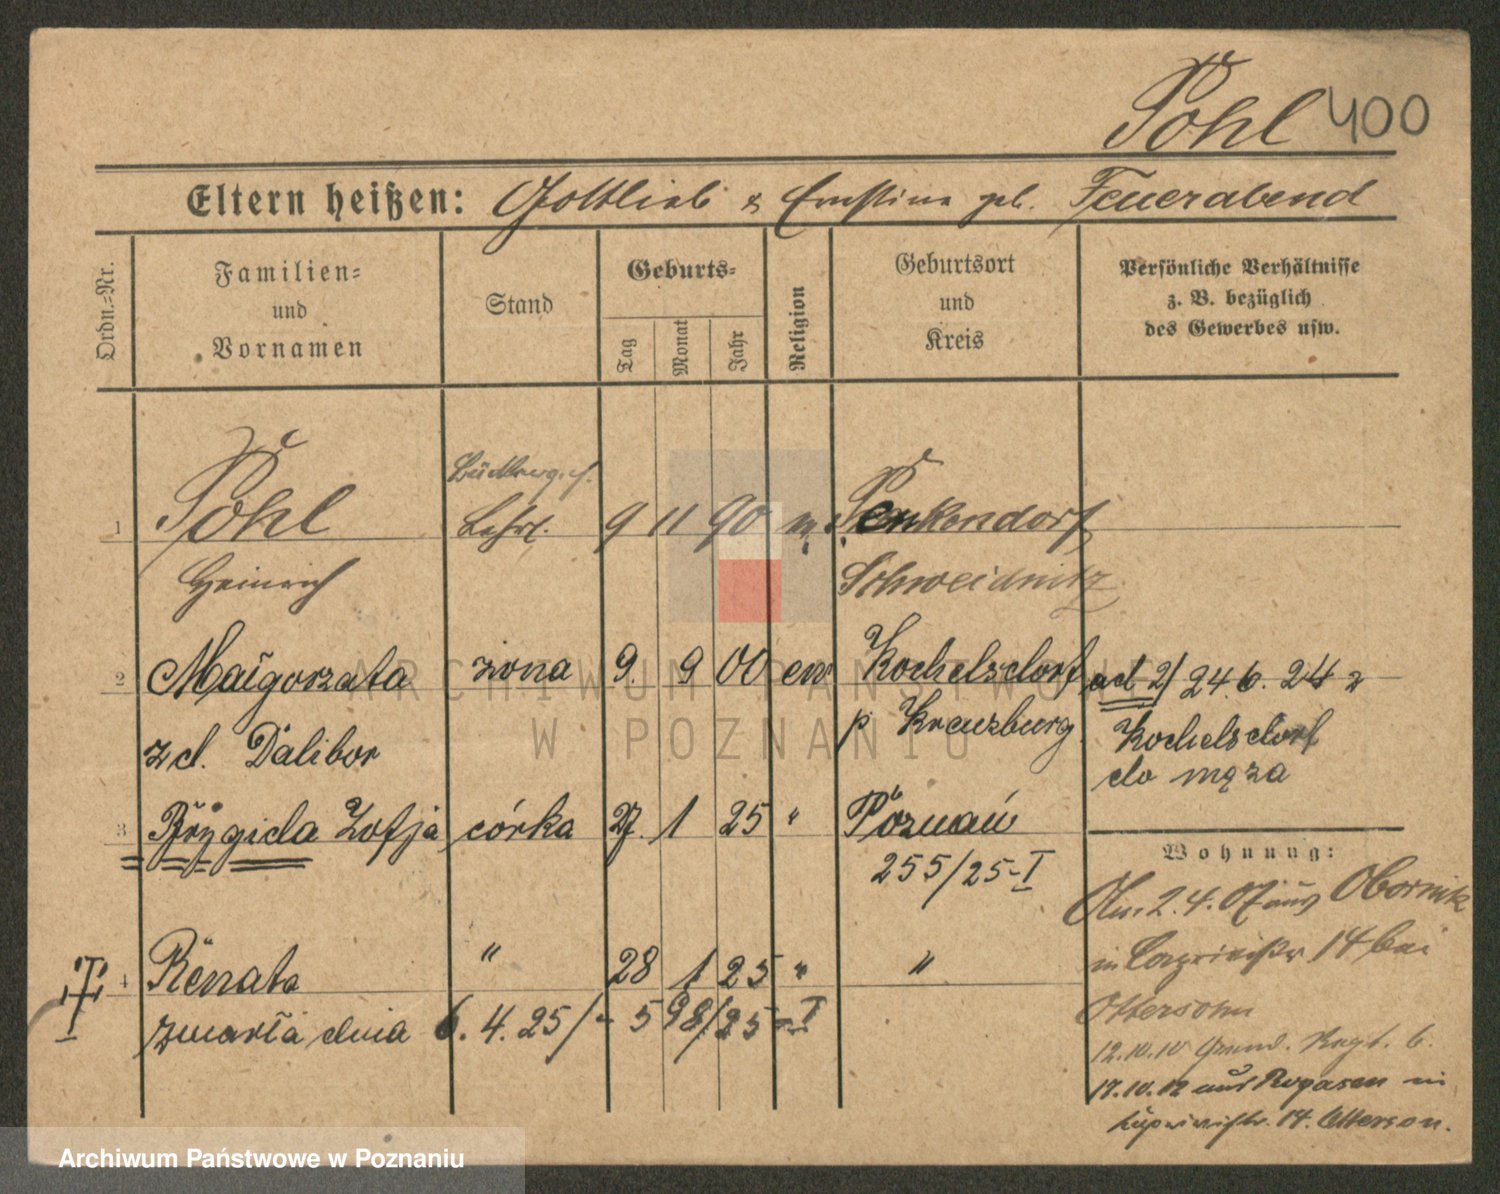 Pohl 400
Eltern heißen: Gottlieb & Ernstine geb. Feuerabend
Ordn.=Nr.
Familien=
und
Vornamen
Stand
Geburts=
Tag
Monat
Jahr
Religion
Geburtsort
und
Kreis
Persönliche Verhältnisse
z. B. bezüglich
des Gewerbes usw.
1 Pohl Lehrl. 9 11 90 Penkendorf
Heinrich Schweidnitz
2 Małgorzata żona 9. 9 00 ew Kochelsdorf ad 2) 24.6.24 z
zd. Dalibor p. Kreuzburg Kochelsdorf
do męża
3 Brygida Zofja córka 27. 1 25 " Poznań
255/25-I
Wohnung:
2.4.07 aus Obornik
in 14 bei
Ottersohn
4 Renata " 28 1 25 " "
zmarła dnia 6.4.25/- 598/25-I
12.10.10 Regt. 6.
17.10.12 aus Rogasen in
14. Otterson.
ARCHIWUM PAŃSTWOWE
W POZNANIU
Archiwum Państwowe w Poznaniu